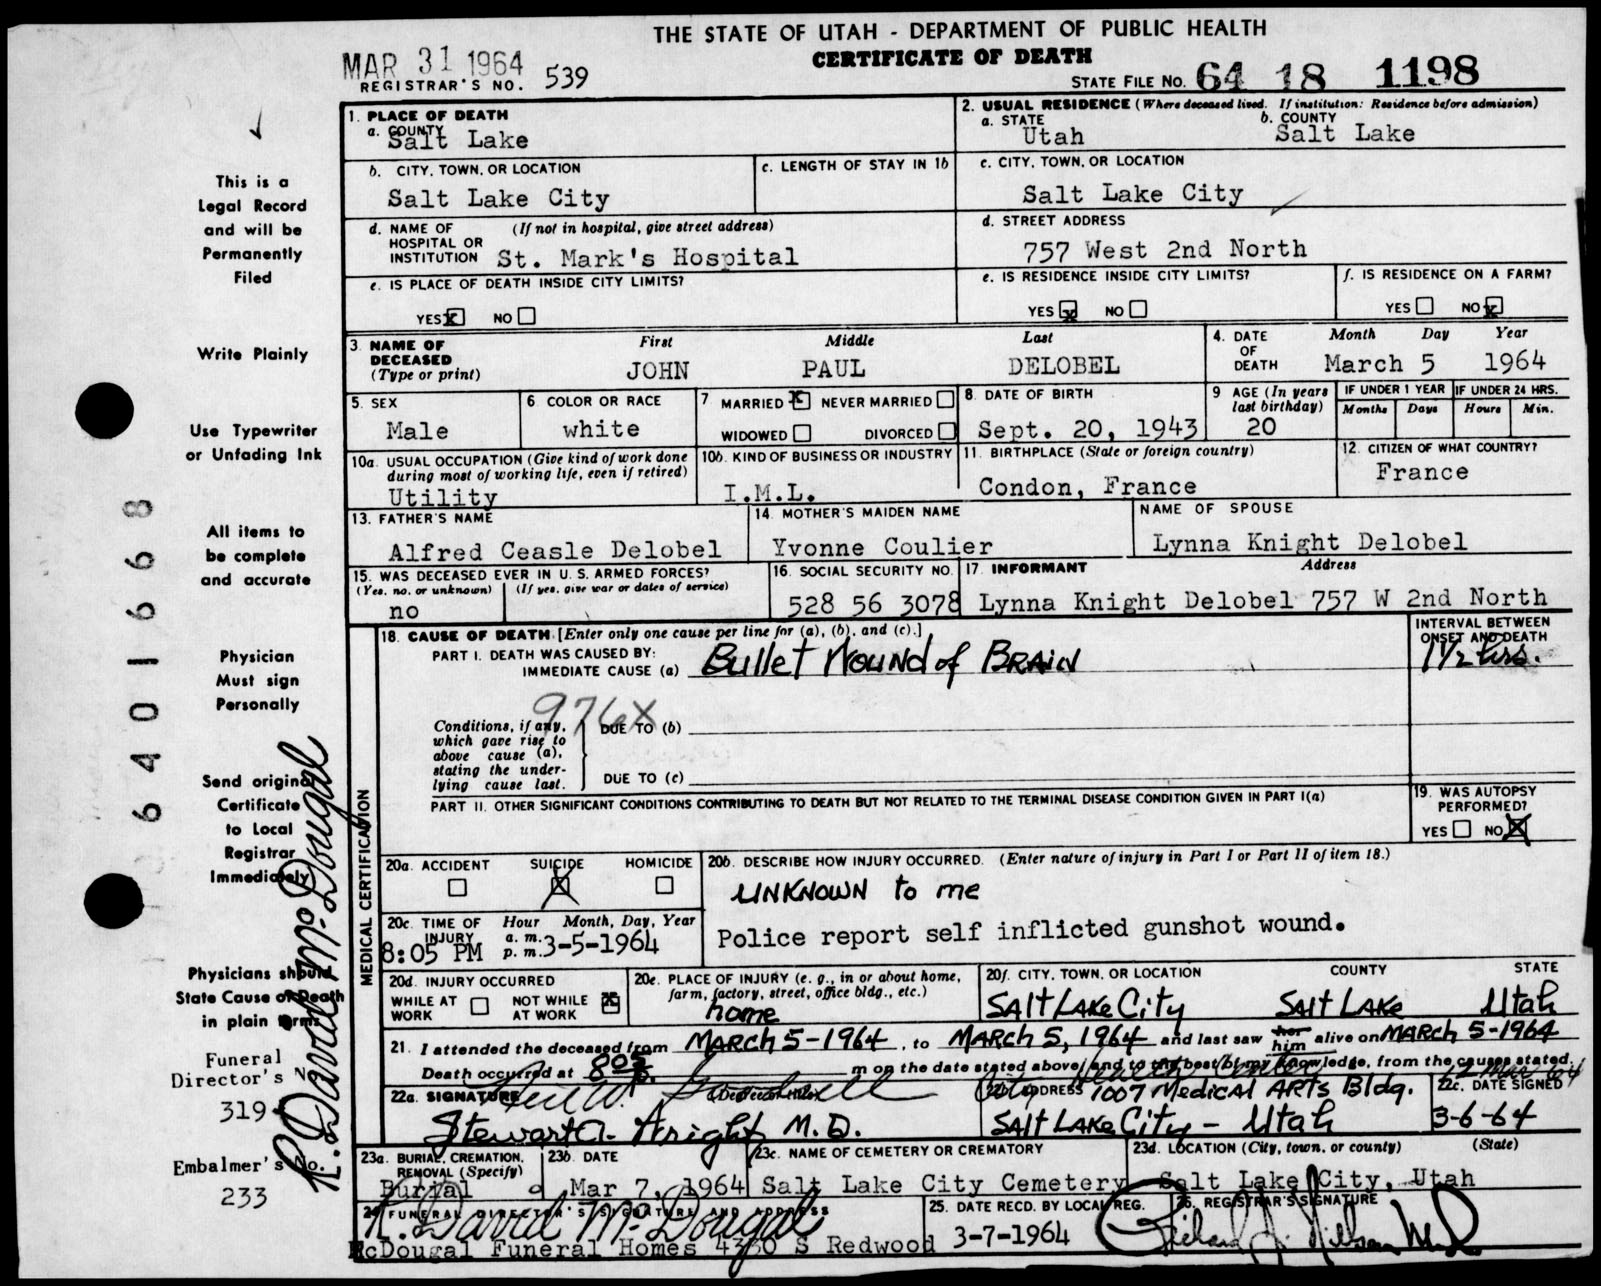 THE STATE OF UTAH - DEPARTMENT OF PUBLIC HEALTH
CERTIFICATE OF DEATH
MAR 31 1964
REGISTRAR'S NO. 539
STATE FILE NO. 64 18 1198
This is a
Legal Record
and will be
Permanently
Filed
Write Plainly
Use Typewriter
or Unfading Ink
All items to
be complete
and accurate
Physician
Must sign
Personally
Send original
Certificate
to Local
Registrar
Immediately
Physicians should
State Cause of Death
in plain terms
Funeral
Director's No.
319
Embalmer's No.
233
6401668
R. David McDougal
1. PLACE OF DEATH
a. COUNTY
Salt Lake
2. USUAL RESIDENCE (Where deceased lived. If institution: Residence before admission)
a. STATE b. COUNTY
Utah Salt Lake
b. CITY, TOWN, OR LOCATION
Salt Lake City
c. LENGTH OF STAY IN 1b
c. CITY, TOWN, OR LOCATION
Salt Lake City
d. NAME OF (If not in hospital, give street address)
HOSPITAL OR
INSTITUTION St. Mark's Hospital
d. STREET ADDRESS
757 West 2nd North
e. IS PLACE OF DEATH INSIDE CITY LIMITS?
YES X NO
e. IS RESIDENCE INSIDE CITY LIMITS?
YES X NO
f. IS RESIDENCE ON A FARM?
YES NO X
3. NAME OF First Middle Last
DECEASED
(Type or print) JOHN PAUL DELOBEL
4. DATE Month Day Year
OF
DEATH March 5 1964
5. SEX
Male
6 COLOR OR RACE
white
7 MARRIED X NEVER MARRIED
WIDOWED DIVORCED
8. DATE OF BIRTH
Sept. 20, 1943
9 AGE (In years
last birthday)
20
IF UNDER 1 YEAR IF UNDER 24 HRS.
Months Days Hours Min.
10a. USUAL OCCUPATION (Give kind of work done
during most of working life, even if retired)
Utility
10b. KIND OF BUSINESS OR INDUSTRY
I.M.L.
11. BIRTHPLACE (State or foreign country)
Condon, France
12. CITIZEN OF WHAT COUNTRY?
France
13. FATHER'S NAME
Alfred Ceasle Delobel
14. MOTHER'S MAIDEN NAME
Yvonne Coulier
NAME OF SPOUSE
Lynna Knight Delobel
15. WAS DECEASED EVER IN U. S. ARMED FORCES?
(Yes, no, or unknown) (If yes, give war or dates of service)
no
16. SOCIAL SECURITY NO.
528 56 3078
17. INFORMANT Address
Lynna Knight Delobel 757 W 2nd North
18. CAUSE OF DEATH [Enter only one cause per line for (a), (b), and (c).]
INTERVAL BETWEEN
ONSET AND DEATH
PART I. DEATH WAS CAUSED BY:
IMMEDIATE CAUSE (a) Bullet Wound of Brain
1 1/2 hrs.
976X
Conditions, if any,
which gave rise to
above cause (a),
stating the under-
lying cause last.
DUE TO (b)
DUE TO (c)
PART II. OTHER SIGNIFICANT CONDITIONS CONTRIBUTING TO DEATH BUT NOT RELATED TO THE TERMINAL DISEASE CONDITION GIVEN IN PART I(a)
19. WAS AUTOPSY
PERFORMED?
YES NO X
MEDICAL CERTIFICATION
20a. ACCIDENT SUICIDE HOMICIDE
X
20b. DESCRIBE HOW INJURY OCCURRED. (Enter nature of injury in Part I or Part II of item 18.)
UNKNOWN to me
Police report self inflicted gunshot wound.
20c. TIME OF Hour Month, Day, Year
INJURY a. m.
8:05 PM p. m. 3-5-1964
20d. INJURY OCCURRED
WHILE AT WORK NOT WHILE AT WORK X
20e. PLACE OF INJURY (e. g., in or about home,
farm, factory, street, office bldg., etc.)
home
20f. CITY, TOWN, OR LOCATION COUNTY STATE
Salt Lake City Salt Lake Utah
21. I attended the deceased from March 5-1964, to March 5, 1964 and last saw her him alive on March 5-1964
Death occurred at 8:05 P. m on the date stated above, and to the best of my knowledge, from the causes stated.
22a. SIGNATURE (Degree or title)
Stewart A. Wright M.D.
22b. ADDRESS 1007 Medical Arts Bldg.
Salt Lake City - Utah
22c. DATE SIGNED
3-6-64
23a. BURIAL, CREMATION,
REMOVAL (Specify)
Burial
23b. DATE
Mar 7, 1964
23c. NAME OF CEMETERY OR CREMATORY
Salt Lake City Cemetery
23d. LOCATION (City, town, or county) (State)
Salt Lake City, Utah
24. FUNERAL DIRECTOR'S SIGNATURE AND ADDRESS
R. David McDougal
McDougal Funeral Homes 4330 S Redwood
25. DATE RECD. BY LOCAL REG.
3-7-1964
26. REGISTRAR'S SIGNATURE